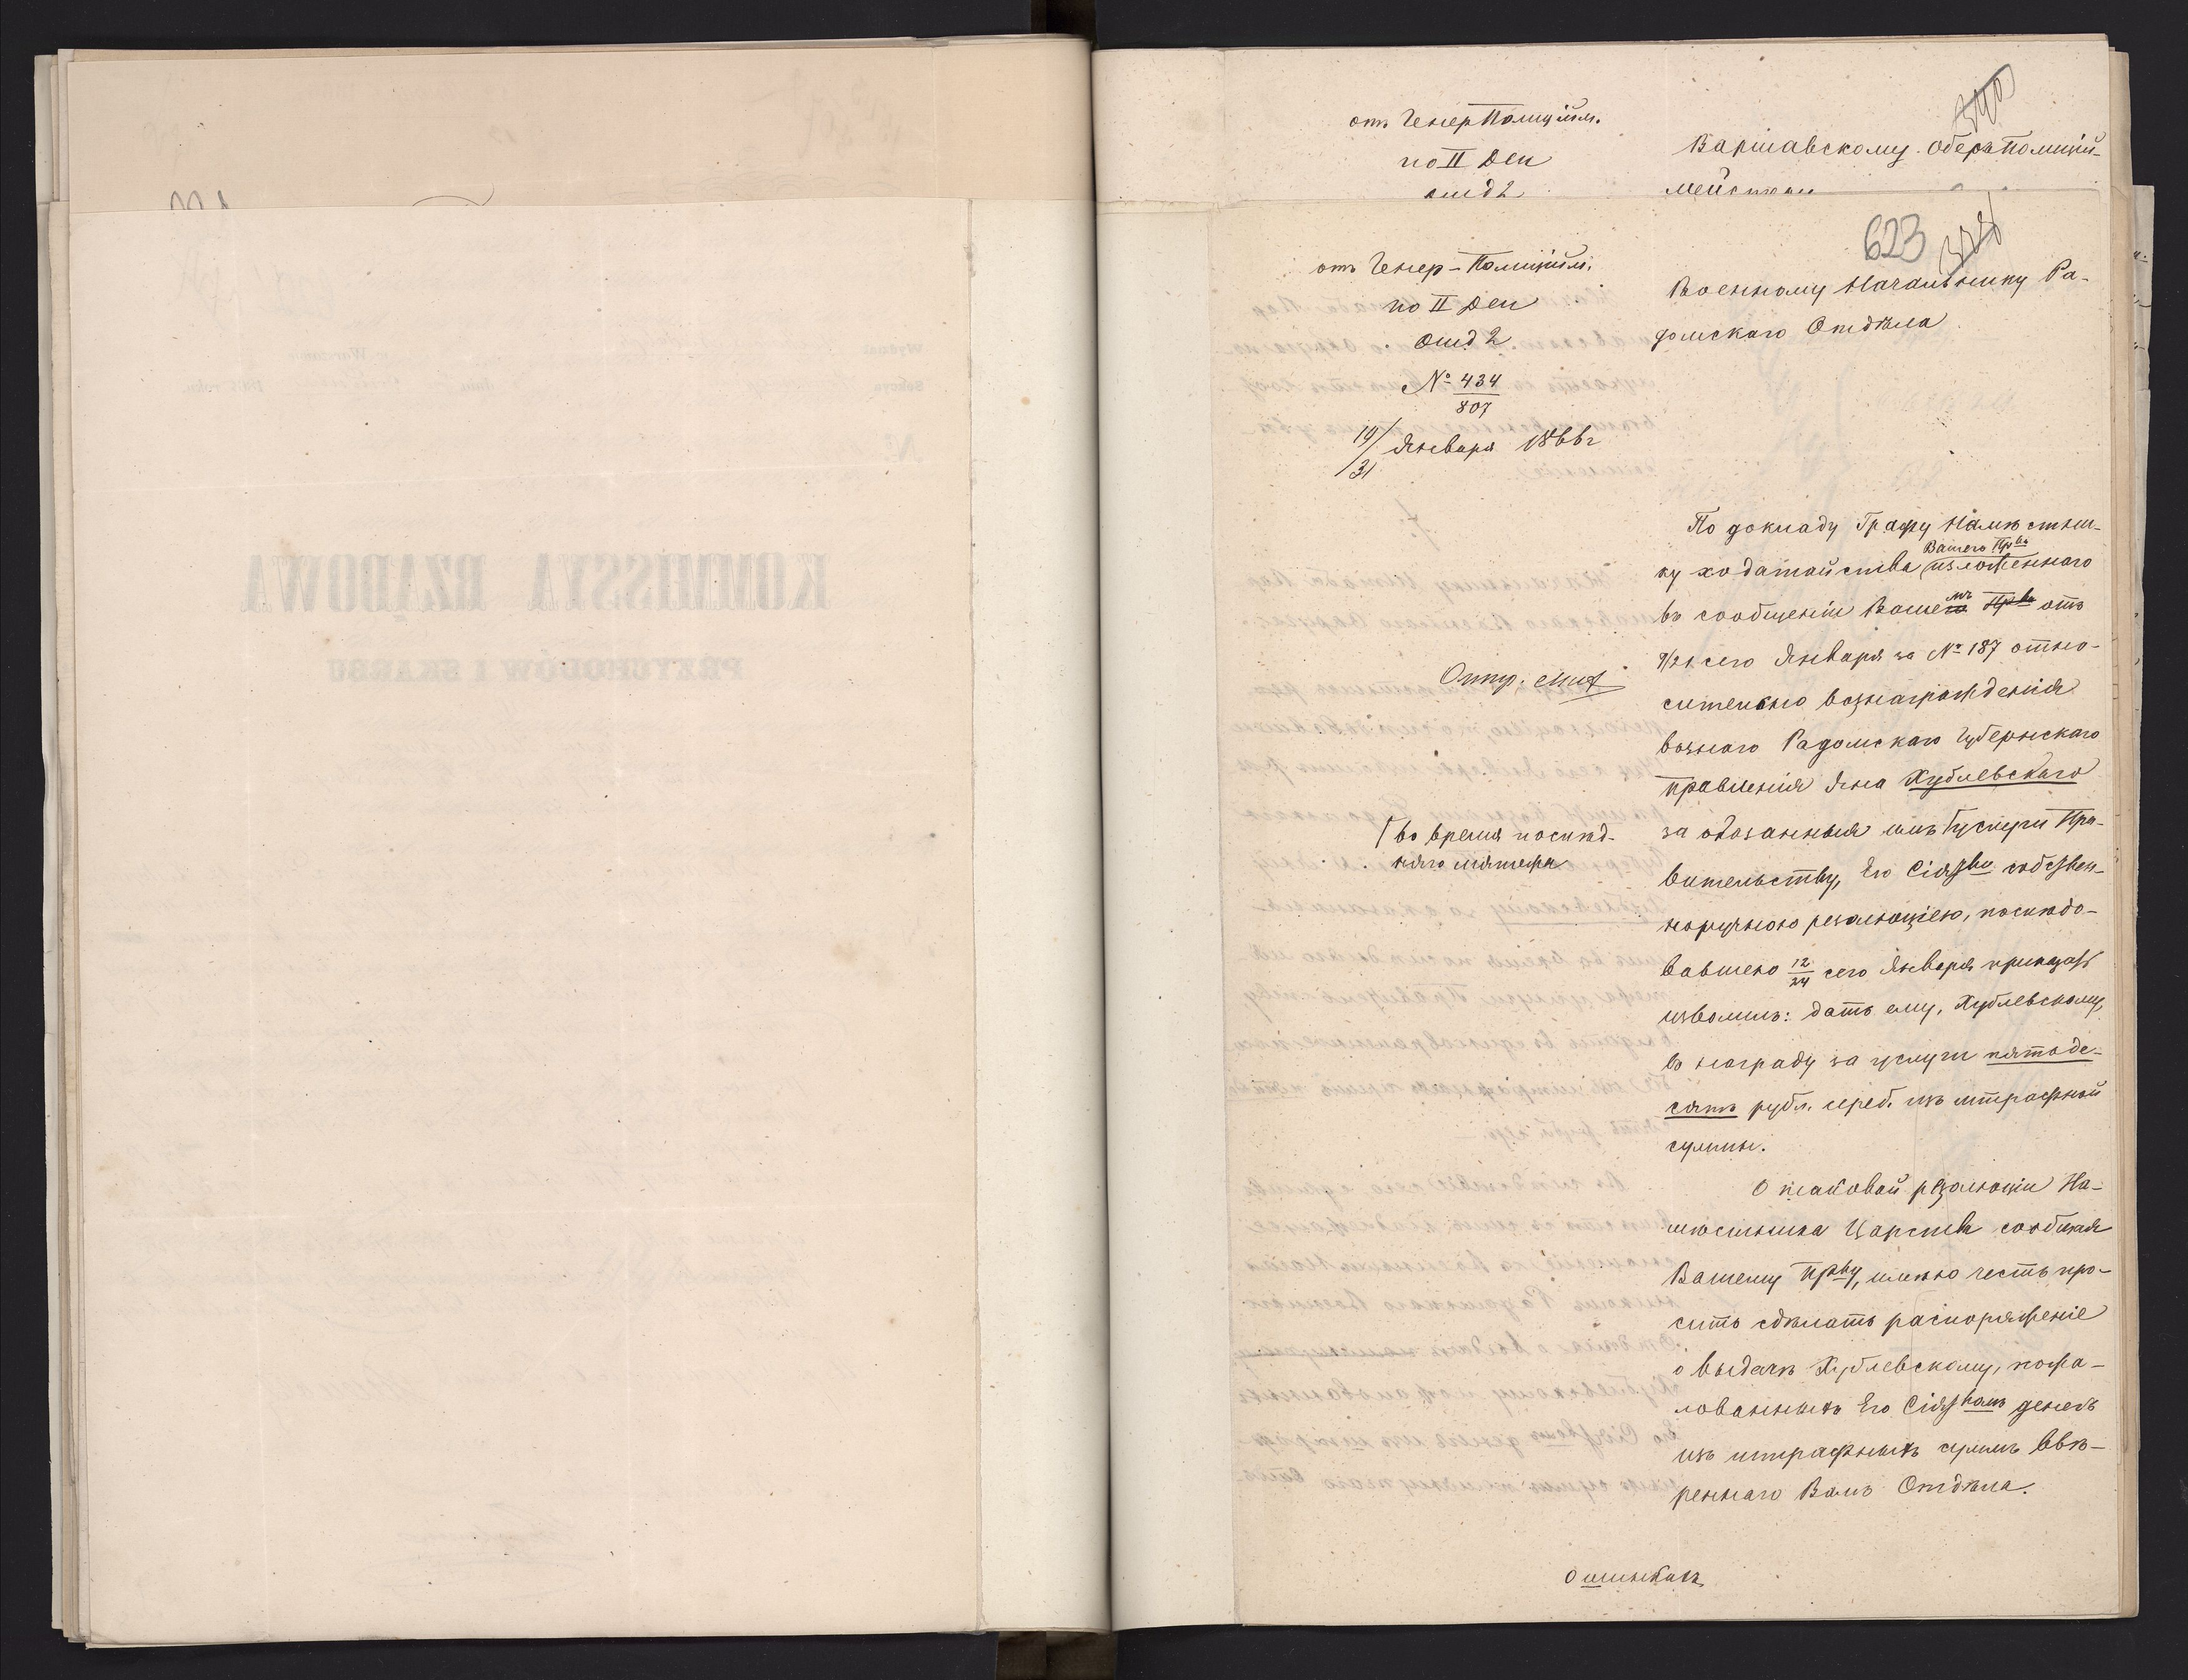 отъ ГенерПолицiйм.
по II Деп
отд 2
Варшавскому оберъ Полицiй-
мейстеру
623
отъ Генер-Полицiйм.
по II Деп
отд 2
№ 434
807
19/31 Января 1866 г
Военному Начальнику Ра-
домскаго Отдѣла
По докладу Графу Намѣстни-
ку ходатайства Вашего Прва изложеннаго
въ сообщенiи Вашемъ Прва отъ
9/21 сего Января за № 187 относ-
сительно вознагражденiя
вознаго Радомскаго Губернскаго
правленiя Яна Хублевскаго
за оказанныя имъ услуги Пра-
во время послѣд-
няго мятежа
вительству, Его Сiяство собствен-
норучною резолюцiею, послѣдо-
вавшею 12/24 сего Января приказать
изволилъ: дать ему, Хублевскому,
въ награду за услуги пятьде-
сятъ рубл. сереб. изъ штрафной
суммы.
О таковой резолюцiи На-
мѣстника Царства сообщая
Вашему Прву, имѣю честь про-
сить сдѣлать распоряженiе
о выдачѣ Хублевскому, пожа-
лованныхъ Его Сiяствомъ денегъ
изъ штрафныхъ суммъ ввѣ-
реннаго Вамъ Отдѣла.
KOMMISSYA RZĄDOWA
PRZYCHODÓW I SKARBU